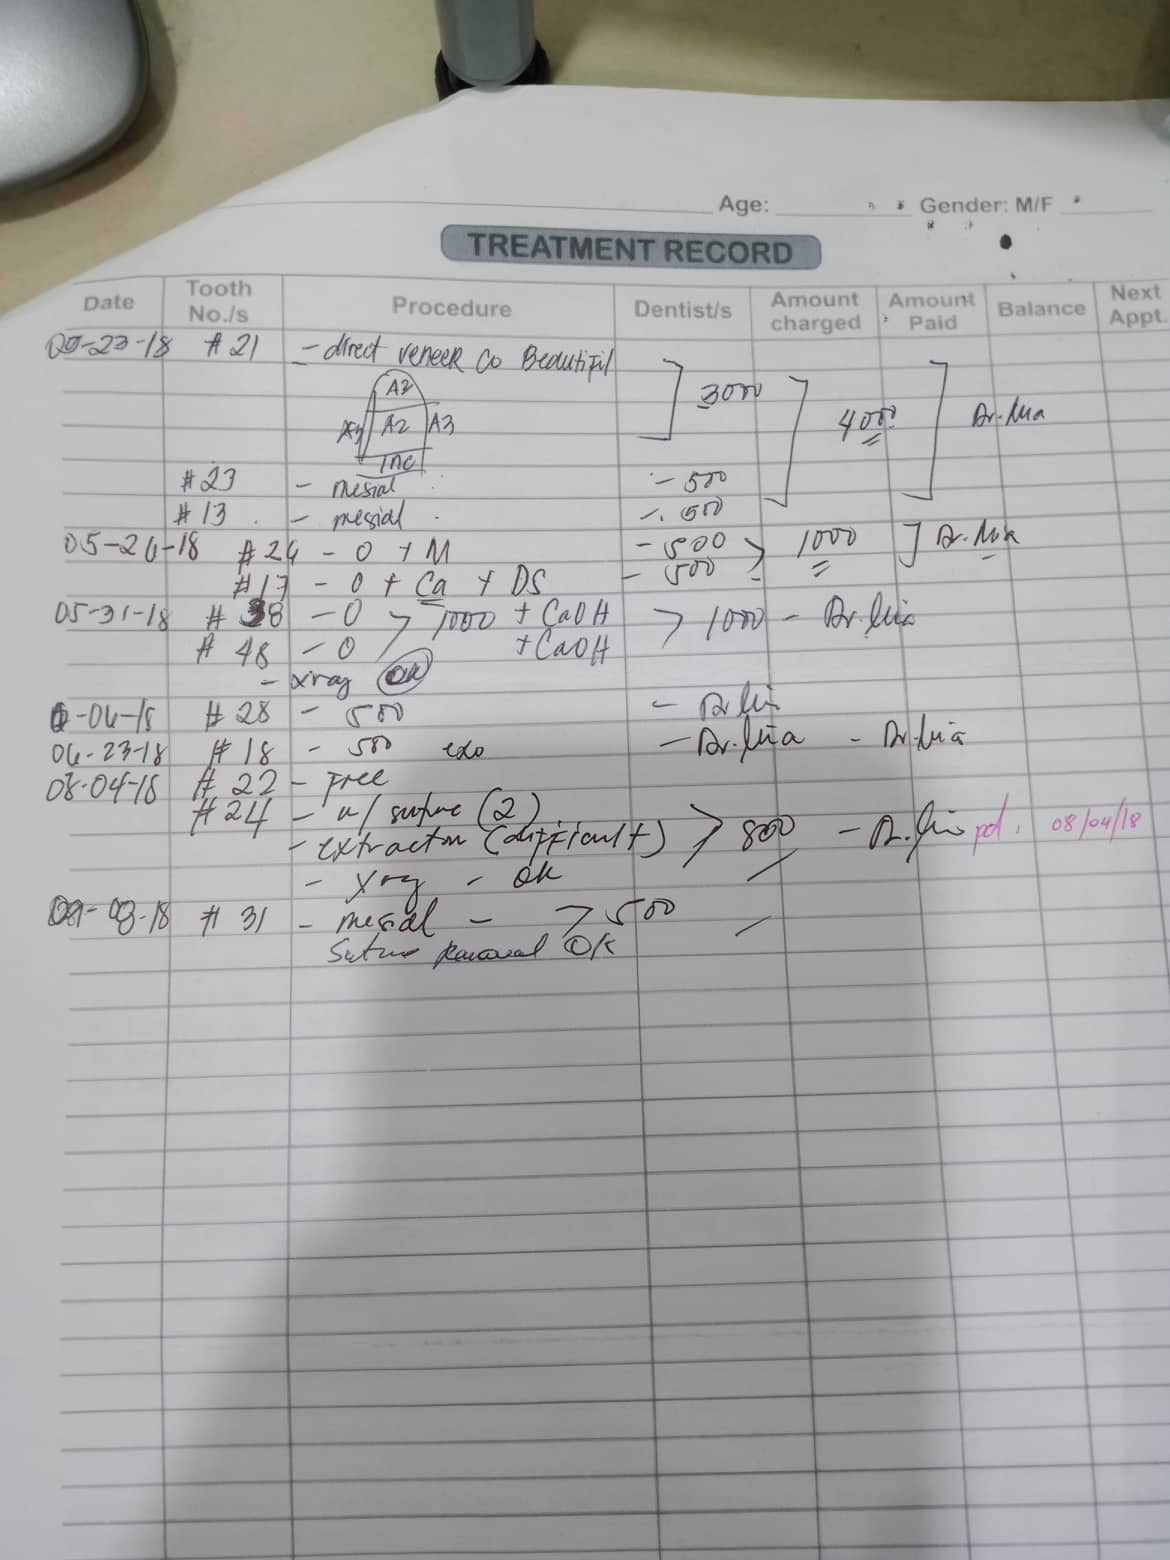 Age: Gender: M/F
TREATMENT RECORD
Date Tooth No./s Procedure Dentist/s Amount charged Amount Paid Balance Next Appt.
-23-18 #21 - direct veneer Beautifil
A2
A2 A3
Inc
3000 4000 Dr. Lia
#23 - mesial - 500
#13 - mesial - 500
05-26-18 #24 - O + M - 500 1000 Dr. Lia
#17 - O + Ca + DS - 500
05-31-18 #38 - O 1000 + CaOH 1000 - Dr. Lia
#48 - O + CaOH
- xray OK
-06-18 #28 - 500 - Dr. Lia
06-23-18 #18 - 500 exo - Dr. Lia - Dr. Lia
08-04-18 #22 - Free
#24 - w/ suture (2)
- extraction (difficult) 800 - Dr. Lia pd. 08/04/18
- Xray - OK
#31 - mesial - 500
Suture Removal OK